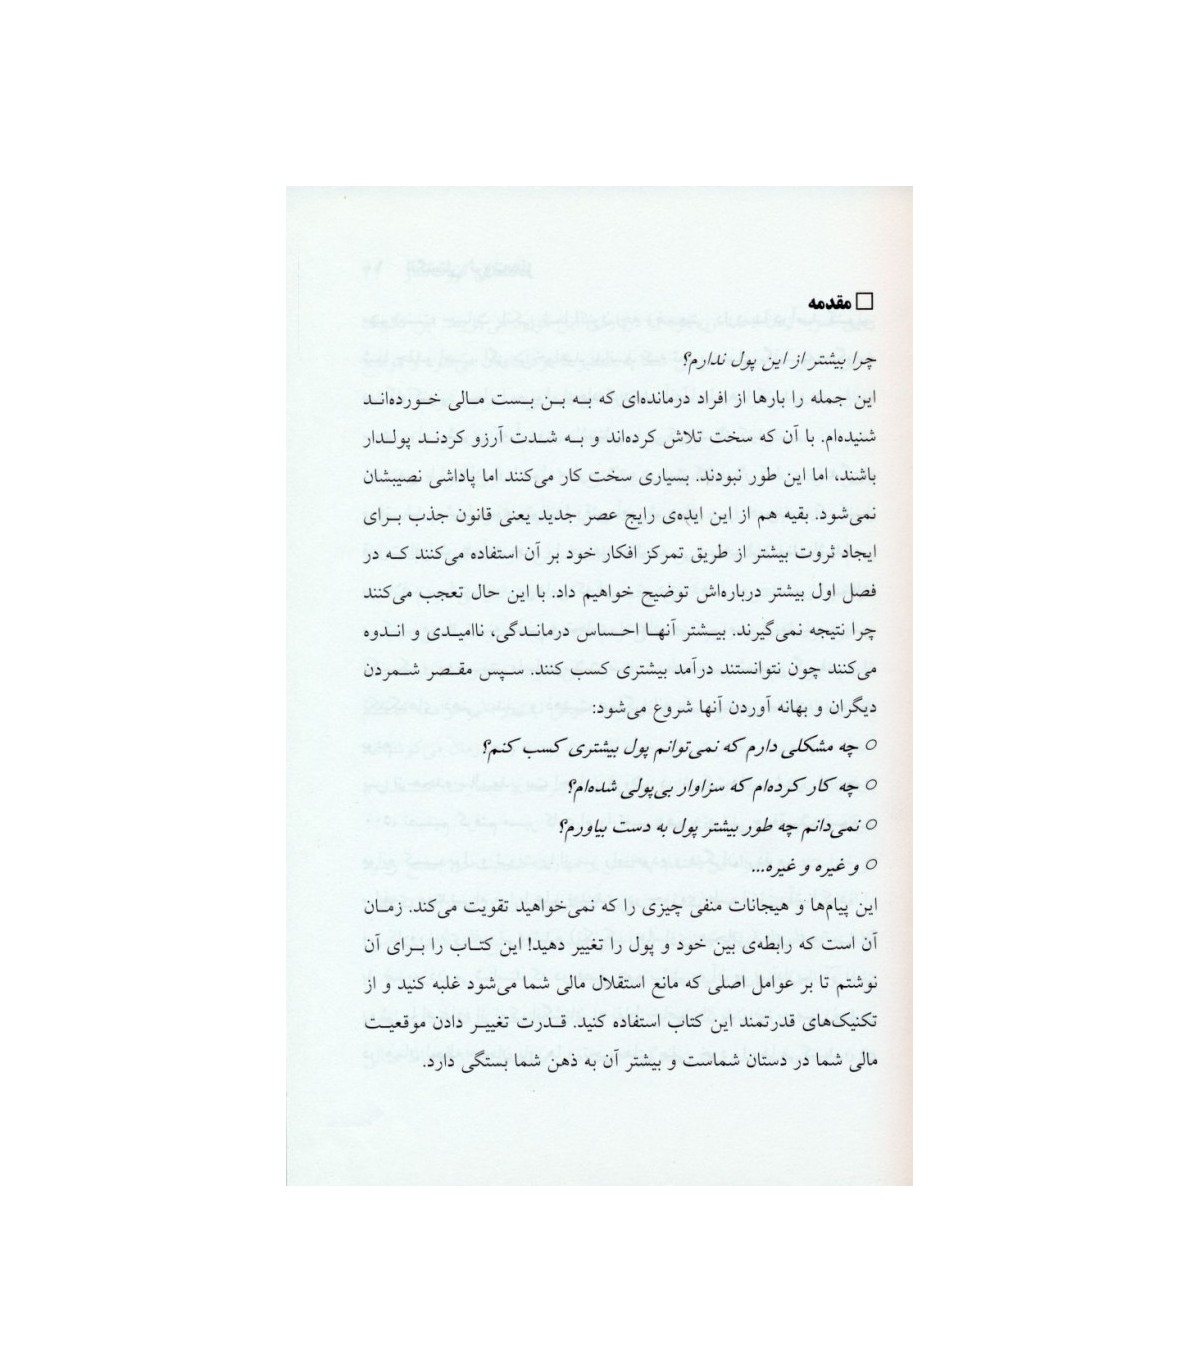 □ مقدمه
چرا بیشتر از این پول ندارم؟
این جمله را بارها از افراد درمانده‌ای که به بن بست مالی خورده‌اند
شنیده‌ام. با آن که سخت تلاش کرده‌اند و به شدت آرزو کردند پولدار
باشند، اما این طور نبودند. بسیاری سخت کار می‌کنند اما پاداشی نصیبشان
نمی‌شود. بقیه هم از این ایده‌ی رایج عصر جدید یعنی قانون جذب برای
ایجاد ثروت بیشتر از طریق تمرکز افکار خود بر آن استفاده می‌کنند که در
فصل اول بیشتر درباره‌اش توضیح خواهیم داد. با این حال تعجب می‌کنند
چرا نتیجه نمی‌گیرند. بیشتر آنها احساس درماندگی، ناامیدی و اندوه
می‌کنند چون نتوانستند درآمد بیشتری کسب کنند. سپس مقصر شمردن
دیگران و بهانه آوردن آنها شروع می‌شود:
○ چه مشکلی دارم که نمی‌توانم پول بیشتری کسب کنم؟
○ چه کار کرده‌ام که سزاوار بی‌پولی شده‌ام؟
○ نمی‌دانم چه طور بیشتر پول به دست بیاورم؟
○ و غیره و غیره...
این پیام‌ها و هیجانات منفی چیزی را که نمی‌خواهید تقویت می‌کند. زمان
آن است که رابطه‌ی بین خود و پول را تغییر دهید! این کتاب را برای آن
نوشتم تا بر عوامل اصلی که مانع استقلال مالی شما می‌شود غلبه کنید و از
تکنیک‌های قدرتمند این کتاب استفاده کنید. قدرت تغییر دادن موقعیت
مالی شما در دستان شماست و بیشتر آن به ذهن شما بستگی دارد.